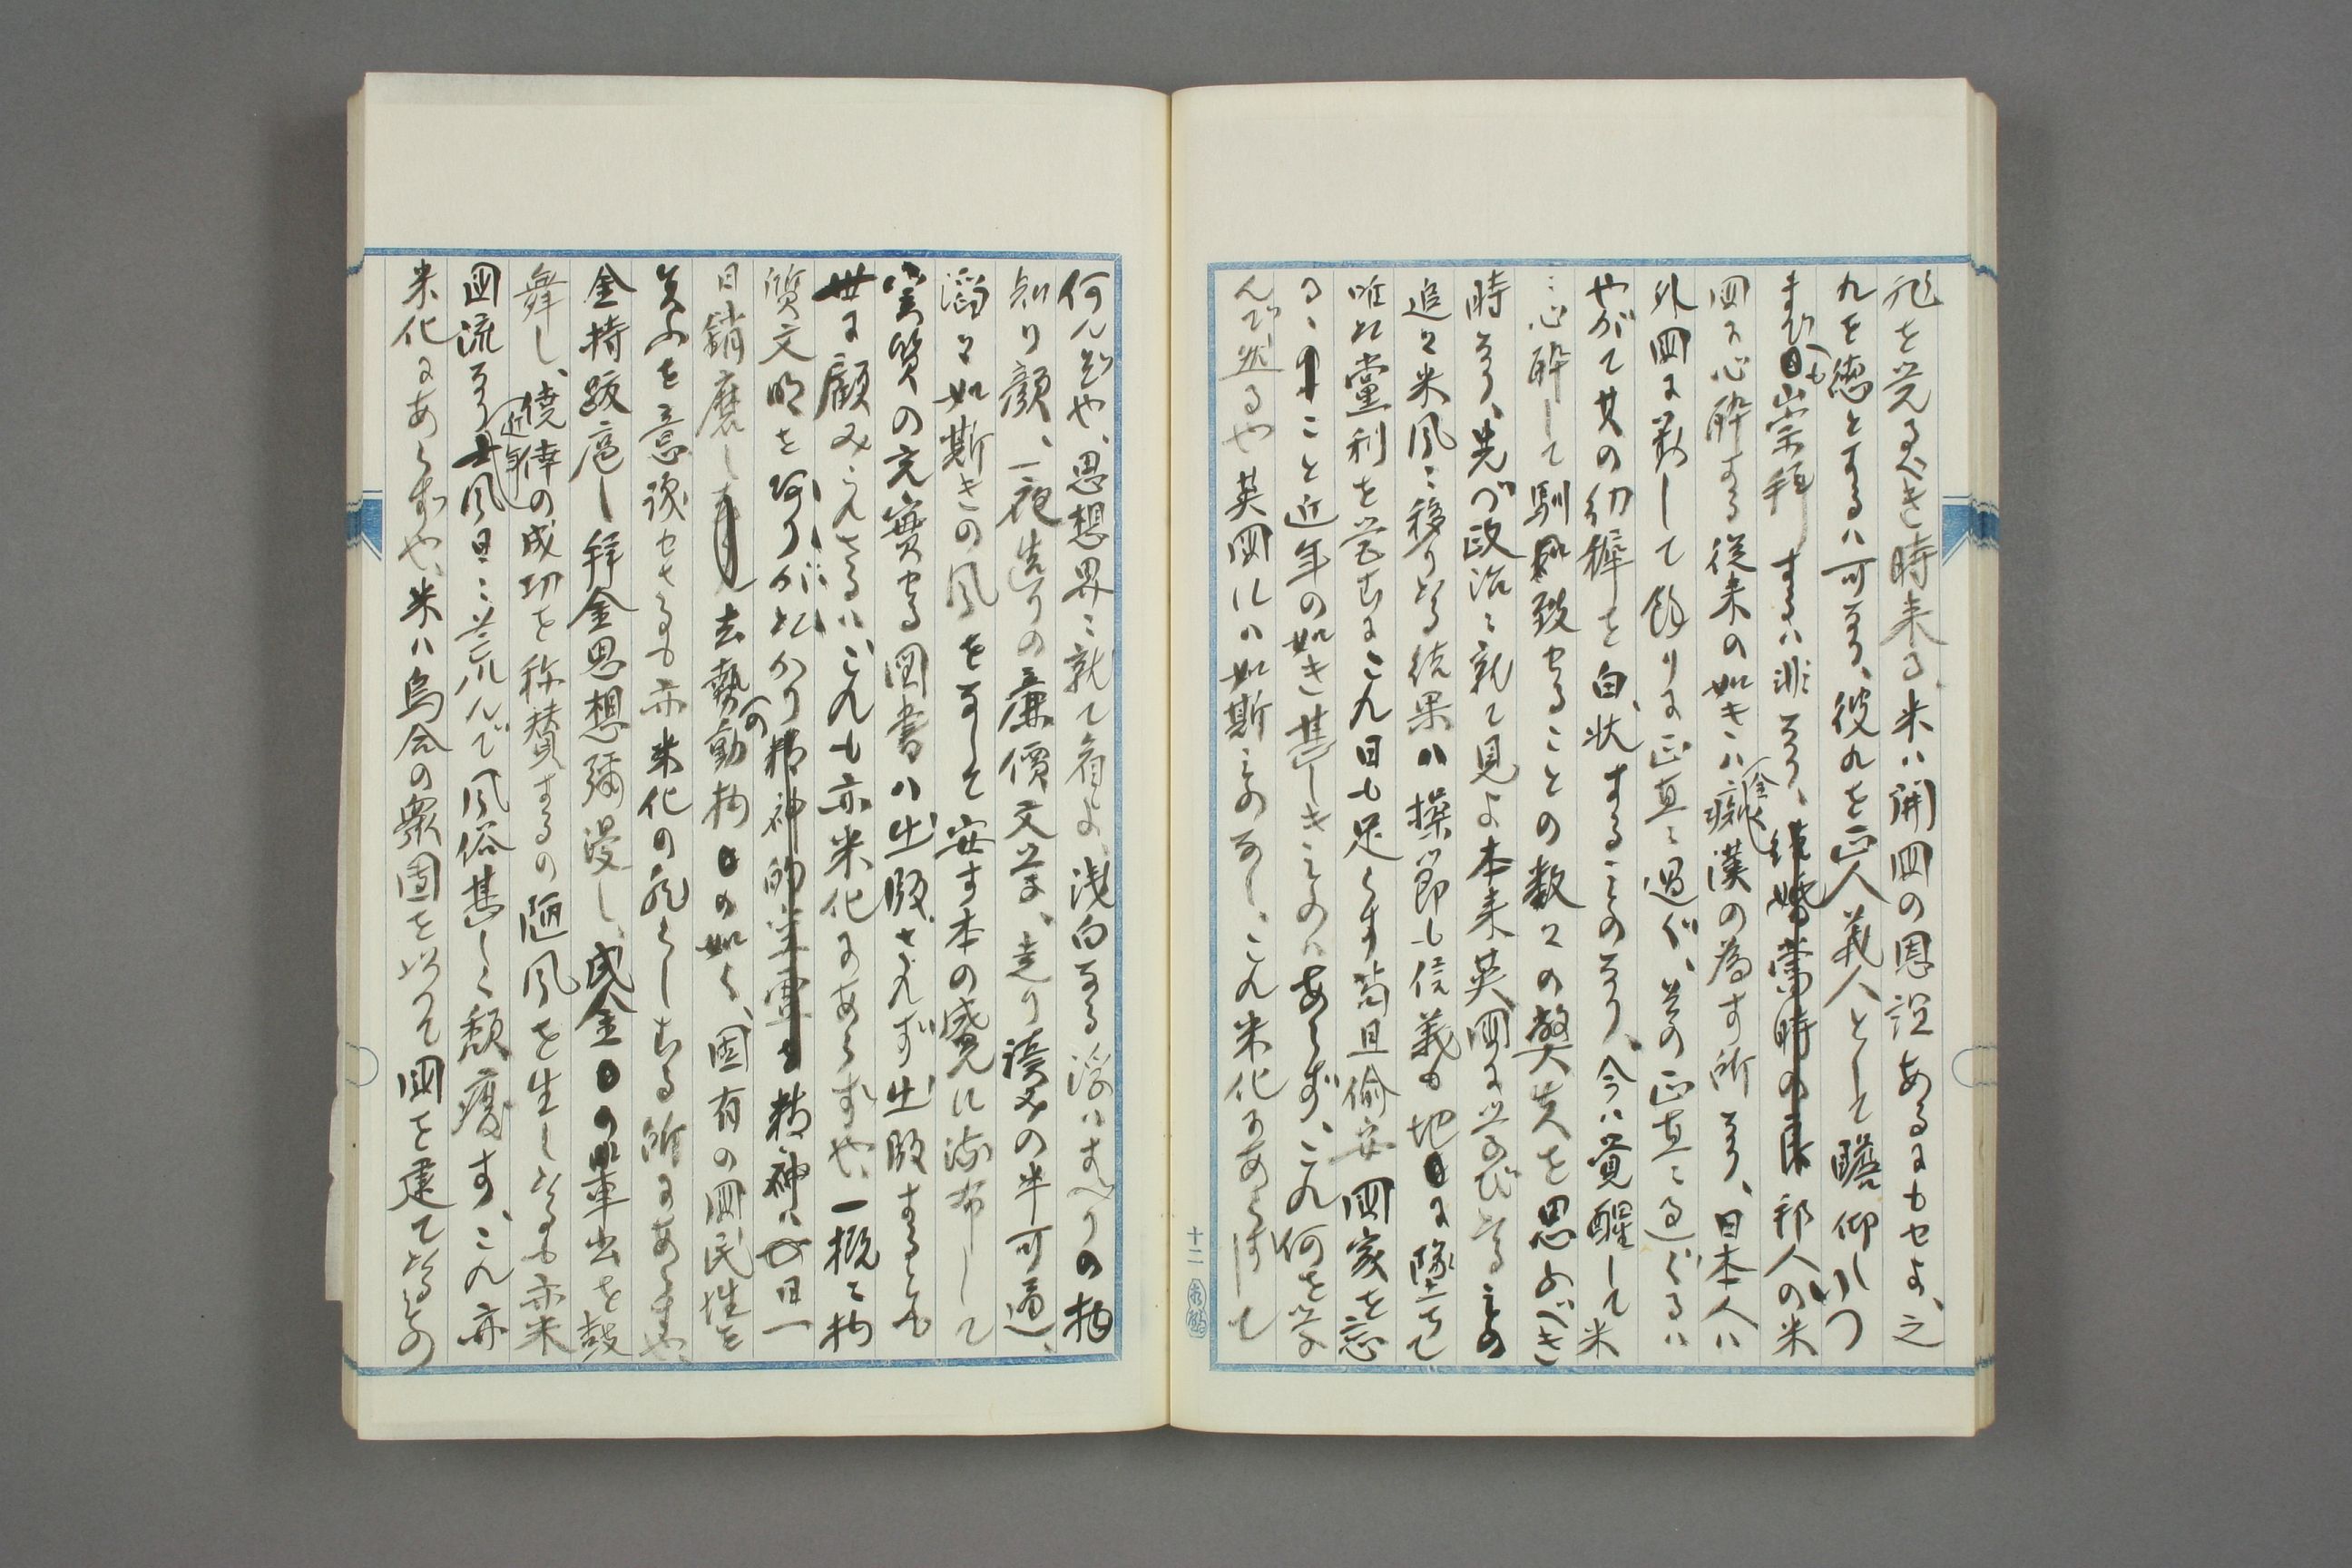 非を覚るべき時来る、米ハ開国の恩誼あるにもせよ、之
れを徳とするハ可なり、彼れを正人義人として瞻仰しつ
まひにも崇拝するハ非なり、邦人の米
国に心酔する従来の如きハ全く痴漢の為す所なり、日本人ハ
外国に対して餘りに正直ニ過ぐ、其の正直ニ過ぐるハ
やがて其の幼穉を白状することのなり、今ハ覚醒して米
ニ心酔して馴致せることの数々の弊失を思ふべき
時なり、先づ政治ニ就て見よ本来英国に学びたるもの
追々米風ニ移りたる結果ハ操節も信義も地に墜ちて
唯だ党利を営むにこれ日も足らず苟且偸安国家を忘
るゝこと近年の如き甚しきものハあらず、これ何を学
んで然るや英国にハ如斯ものなし、これ米化にあらずして
十二
何んぞや、思想界ニ就て看よ、浅白なる浮ハすべりの物
知り顔、一夜造りの廉價文学、走り読みの半可通、
滔々如斯きの風をなして安す本の盛んに流布して
実質の充実せる図書ハ出版されず出版するとも
世に顧みられざるハ、これも亦米化にあらずや、一概ニ物
質文明をありがたかり精神ハ日一
日銷磨し去勢動物の如く、固有の国民性を
失ふを意識せざるも亦米化の然らしむる所にあらずや、
金持跋扈し拝金思想彌漫し、成金の輩出を鼓
舞し、僥倖の成功を称賛するの陋風を生じたるも亦米
国流なり近年士風日ニ荒んで風俗甚しく頽廃す、これ亦
米化にあらずや、米ハ烏合の衆団を以て国を建てたるもの